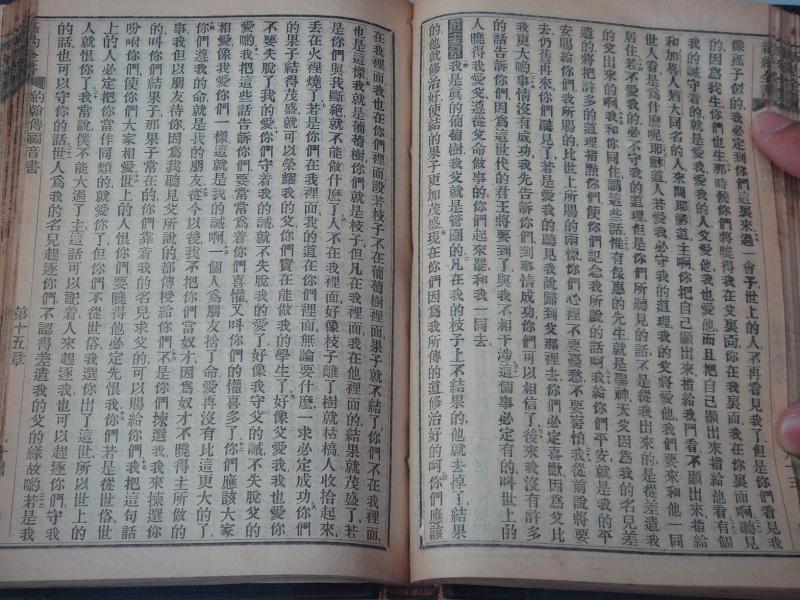 像孤子似的我必定到你們這裏來過一會子世上的人不再看見我了但是你們看見我
因爲我生你們也生那時候你們將曉得我在父裏面你在我裏面我在你裏面啊聽見
我的誡遵守着的就是愛我愛我的人父愛他我也愛他而且把自己顯出來指給他看有個
和加畧人猶大同名的人來問耶穌道主啊你把自己顯出來指給我們看不顯出來指給
世人看是爲什麽呢耶穌道人若愛我必守我的道理我的父愛他我們要來和他一同
居住若不愛我的必不守我的道理但是你們所聽見的話不是從我出來的是從差遣我
的父出來的啊我和你同住講這些話惟有保惠的先生就是聖神天父因爲我的名兒差
遣的將把許多的道理指點你們使你們記念我所說的話啊我給你們平安就是我的平
安賜給你們我所賜的比世上所賜的兩樣你們心裡不要憂愁不要害怕我從前說將要
去仍舊再來你們聽見了若是愛我的聽見我說歸到父那裡去你們必定喜歡因爲父比
我更大喲事情沒有成功我先告訴你們到事情成功你們可以相信了後來我沒有許多
的話告訴你們因爲這世代的君王將要到了與我不相干涉這個事必定有的叫世上的
人曉得我愛父遵從父命做事的你們起來罷和我一同去
我是眞的葡萄樹我父就是管園的凡在我的枝子上不結果的他就去掉了結果
的他就修治好使結的果子更加茂盛現在你們因爲我所傳的道修治好的呵你們應該
在我裡面我也在你們裡面設若枝子不在葡萄樹裡面果子就不結了你們不在我裡面
也是這樣我就是葡萄樹你們就是枝子但凡在我裡面我在他裡面的結果就茂盛了若
是你們與我斷絶就不能做什麽了人不在我裡面好像枝子離了樹就枯槁人收拾起來
丟在火裡燒了若是你們在我裡面我的道在你們裡面無論要什麽一求必定成功你們
的果子結得茂盛就可以榮耀我的父你們實在能做我的學生了好像父愛我我也愛你
們不要失脫了我的愛你們守着我的誡就不失脫我的愛了好像我守父的誡不失脫父的
愛喲我把這些話告訴你們要常常爲着你們喜懽又叫你們的懽喜多了你們應該大家
相愛像我愛你們一樣這就是我的誡啊一個人爲朋友捨了命愛再沒有比這更大的了
你們遵着我的命就是我的朋友從今以後我不把你們當奴才因爲奴才不曉得主所做的
事我但以朋友待你因爲我聽見父所說的都傳授給你們不是你們揀選我我來揀選你
的叫你們結果子那果子常在的你們靠着我的名兒求父的可以賜給你們我把這句話
吩咐你們使你們大家相愛世上的人恨你們要曉得他必定先恨我你們若是從世俗世
上的人必定把你們當作同類的就愛你了但你們不從世俗我選你出了這世所以世上的
人就恨你了我當說僕不能大過了主這話可以記着人來趕逐我也可以趕逐你們守我
的話也可以守你的話世人爲我的名兒趕逐你們不認得差遣我的父的緣故喲若是我
約翰傳福音書
第十五章